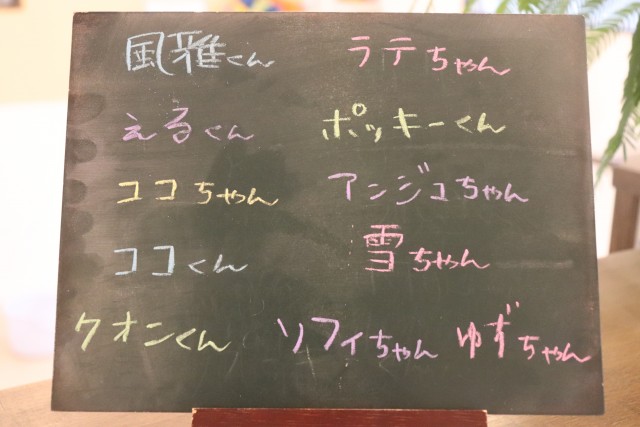 風雅くん ラテちゃん
えるくん ポッキーくん
ココちゃん アンジュちゃん
ココくん 雪ちゃん
クオンくん ソフィちゃん ゆずちゃん